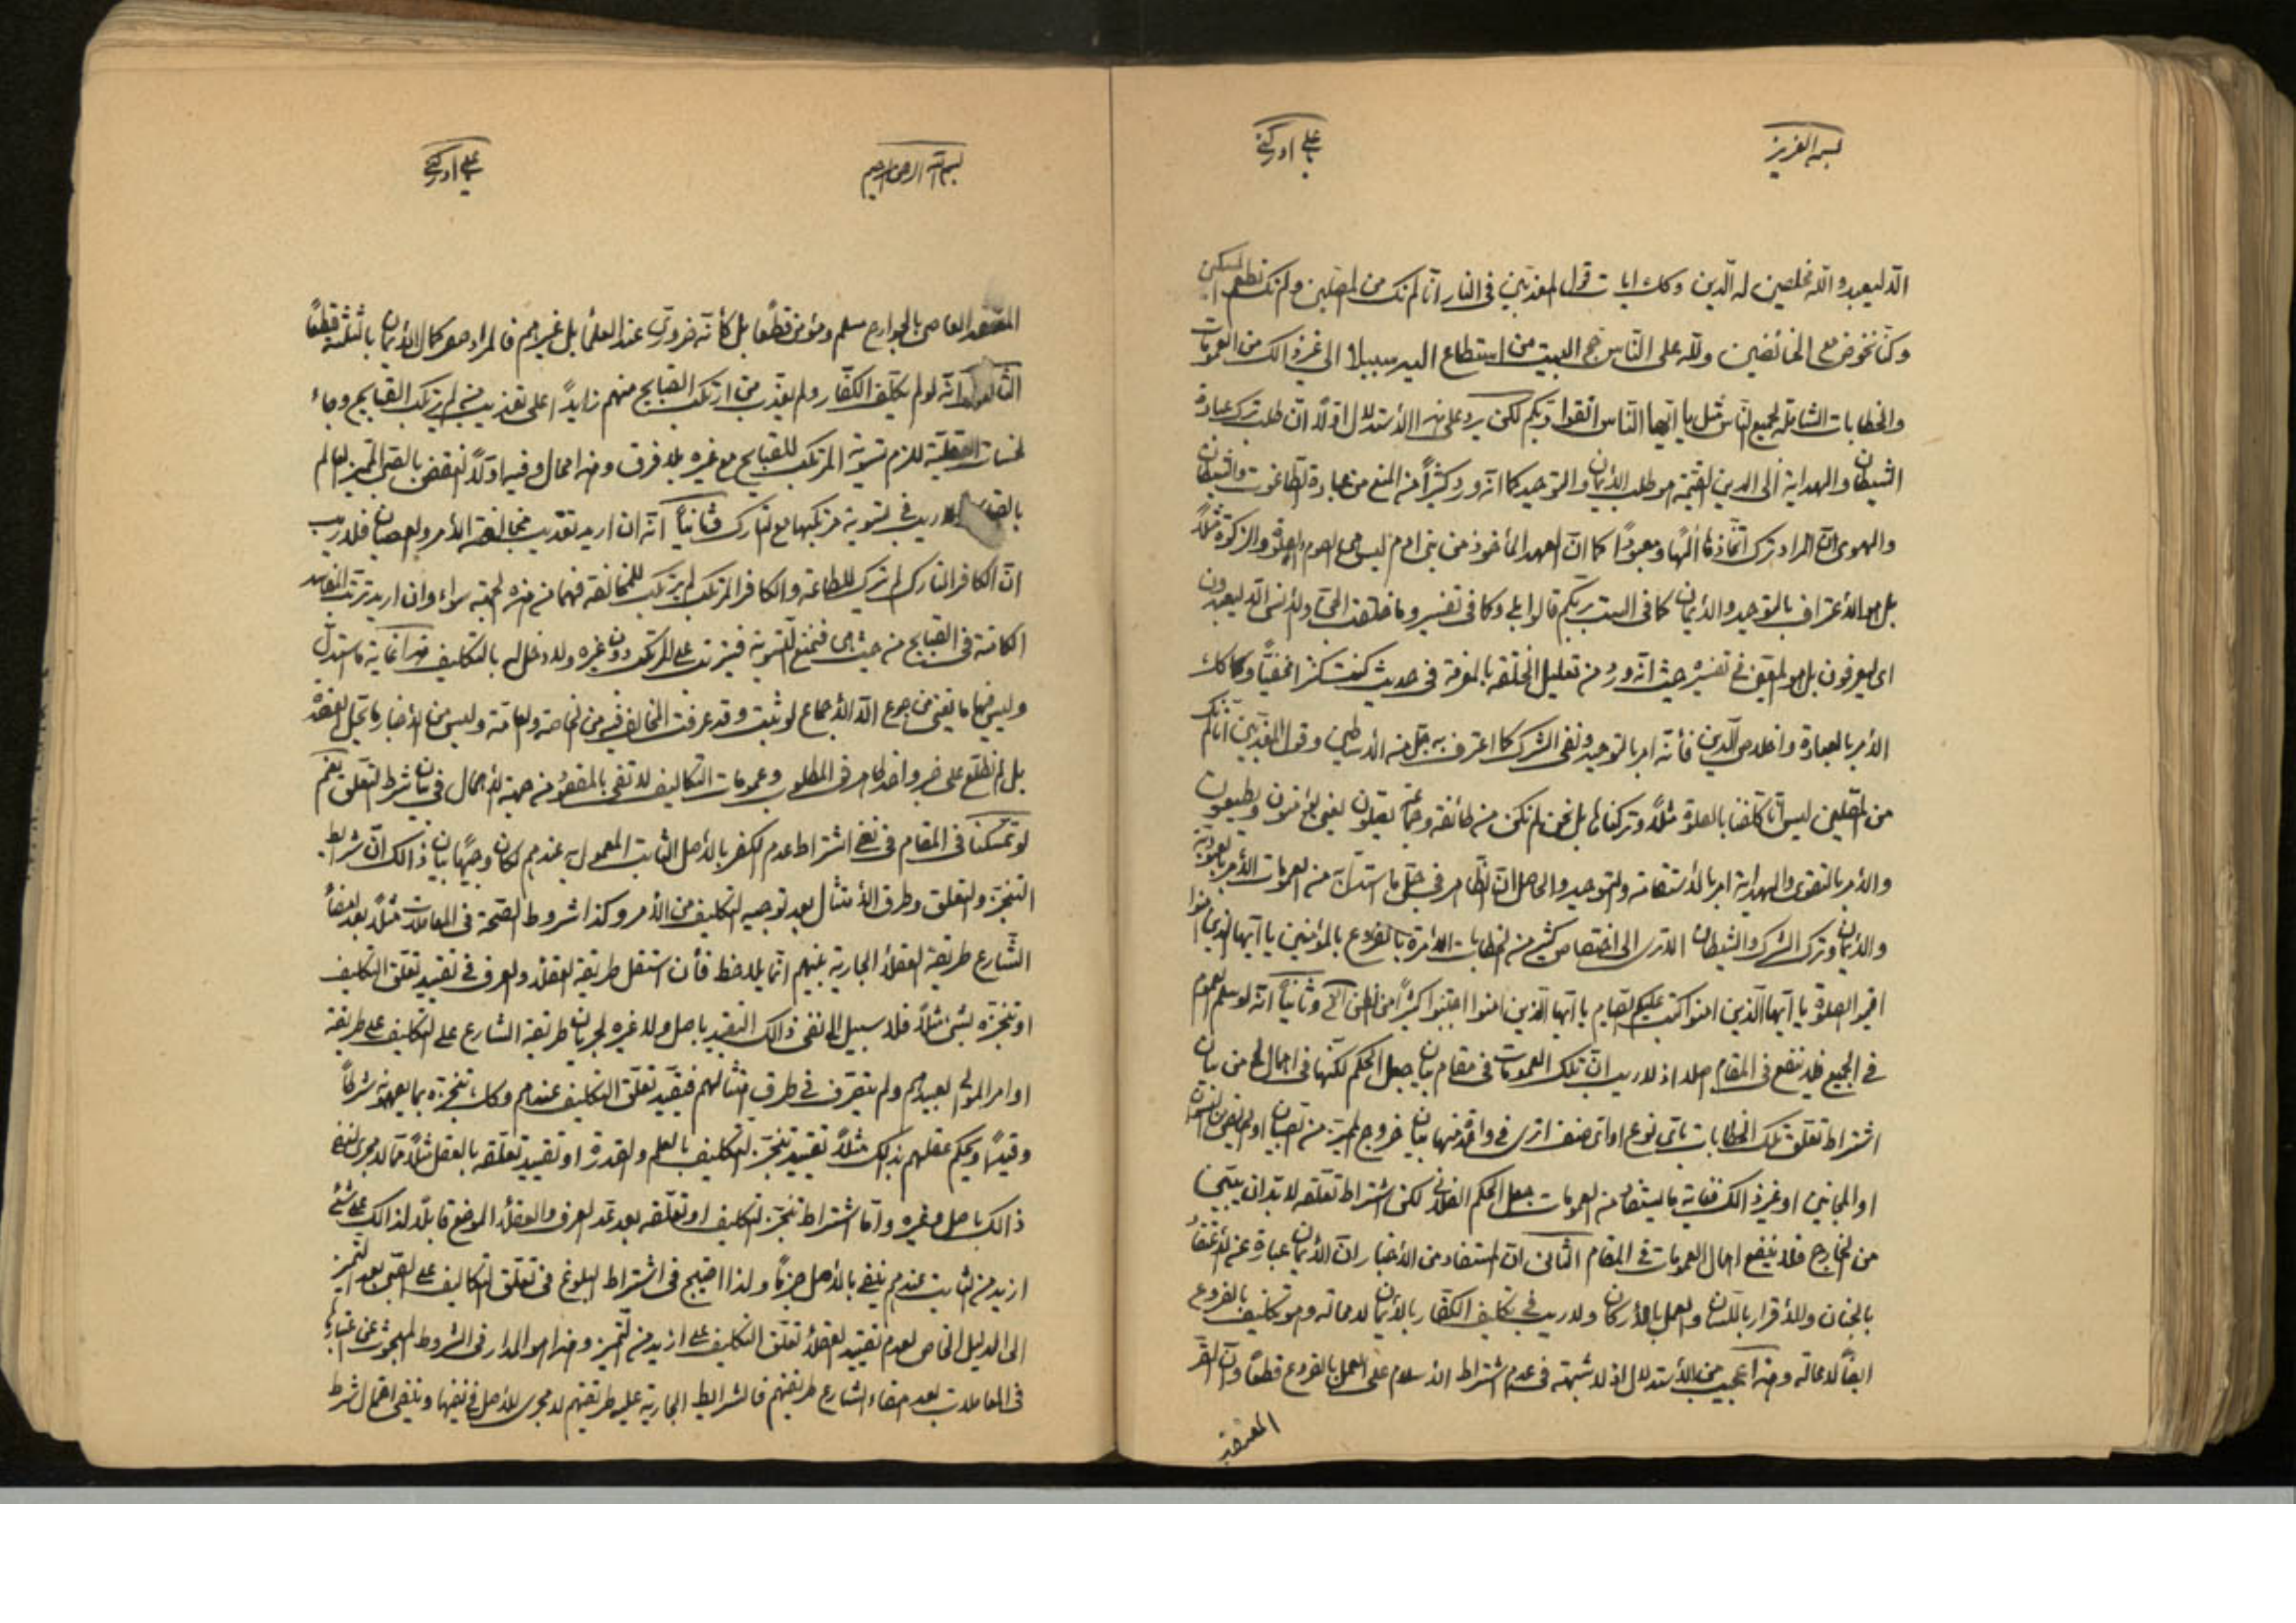 بسمه العزيز
الا ليعبدوا الله مخلصين له الدين وكك ايات قول المعذبين في النار انا لم نك من المصلين ولم نك نطعم المسكين
وكنا نخوض مع الخائضين ولله على الناس حج البيت من استطاع اليه سبيلا الى غير ذالك من العمومات
والخطابات الشاملة لجميع الناس مثل يا ايها الناس اتقوا ربكم لكن يرد على هذا الأستدلال اولًا ان طلب ترك عبادة
الشيطان والهداية الى الدين القيمة هو طلب الأيمان والتوحيد كما انه ورد كثيرًا من المنع من عبادة الطاغوت والشيطان
والهوى المراد ترك اتخاذها الهًا ومعبودًا كما ان العهد المأخوذ من بني ادم ليس هي الصوم والصلوة والزكوة مثلًا
بل هو الأعتراف بالتوحيد والأيمان كما في الست بربكم قالوا بلى وكما في تفسير وما خلقت الجن والأنس الا ليعبدون
اى ليعرفون بل هو المتعين في تفسيره حيث انه ورد من تعليل الخلقه بالمعرفة في حديث كنت كنزا مخفيًا وكك
الأمر بالعبادة واخلاص الدين فأنه امر بالتوحيد ونفى الشرك كما اعترف به جل من الأساطين وقول المعذبين انا لم نك
من المصلين ليس انا كلفنا بالصلوة مثلًا وتركناها بل نحن لم نكن من طائفة وجماعة يصلون يعنى يؤمنون ويطيعون
والأمر بالتقوى والهداية امر بالأستقامة والتوحيد والحاصل ان الظاهر في جل ما استدل به من العمومات الأمر بالعبودية
والأيمان وترك الشرك والشيطان الا ترى الى اختصاص كثير من الخطابات الأمرة بالفروع بالمؤمنين يا ايها الذين امنوا
اقيموا الصلوة يا ايها الذين امنوا كتب عليكم الصيام يا ايها الذين امنوا اجتنبوا كثيرًا من الظن الخ وثانيًا انه لو سلم العموم
في الجميع فلا ينفع في المقام اصلا اذ لا ريب ان تلك العمومات في مقام بيان جعل الحكم لكنها في اجمال من بيان
اشتراط تعلق تلك الخطابات باى نوع او اى صنف اترى في واحد منها بيان خروج المميز من الصبيان او الحائض من النسوان
او المجانين او غير ذالك فغاية ما يستفاد من العمومات جعل الحكم الفلانى لكن اشتراط تعلقه لا بد ان يتبين
من الخارج فلا ينفع اجمال العمومات في المقام الثانى ان المستفاد من الأخبار ان الأيمان عبارة عن الأعتقاد
بالجنان والأقرار باللسان والعمل بالأركان ولا ريب في تكليف الكفار بالأيمان لا محالة وهو تكليف بالفروع
ايضًا لا محالة وهذا عجيب من الأستدلال اذ لا شبهة في عدم اشتراط الأسلام على العمل بالفروع قطعًا وان المقر
المعتقد
بسم الله الرحمن الرحيم
المعتقد العاصى بالجوارح مسلم ومؤمن قطعًا بل كأنه ضرورى عند العلمأ بل غيرهم فالمراد هو كمال الأيمان بالثلثة قطعًا
الثالث انه لو لم يكلف الكفار ولم يعذب من ارتكب القبايح منهم زايدًا على تعذيب من لم يرتكب القبايح وجاء
لحسنات العقلية للزم تسوية المرتكب للقبايح مع غيره بلا فرق وهذا محال وفيه اولًا النقض بالصبى المميز العالم
ريب في تسوية مرتكبها مع التارك وثانيًا انه ان اريد تعذيب مخالفة الأمر والعصيان فلا ريب
ان الكافر التارك لم يترك للطاعة والكافر المرتكب لم يرتكب للمخالفة فهما من هذه الجهة سواء وان اريد ترتب المفاسد
الكامنة في القبايح من حيث هى فنمنع التسوية فيترتب على المرتكب دون غيره ولا دخل له بالتكليف هذا غاية ما استدل
وليس فيها ما يغنى من جوع الا الأجماع لو ثبت وقد عرفت المخالف فيه من الخاصة والعامة وليس من الأخبار ما يحتمل العضد
بل لم نطلع على خبر واحد ظاهر في المطلوب وعمومات التكاليف لا تفى بالمقصود من جهة الأجمال في بيان شرط التعلق نعم
لو تمسكنا في المقام في نفى اشتراط عدم الكفر بالأصل الثابت المعمول به عندهم لكان وجيهًا بيان ذالك ان شرايط
التنجز والتعلق وطرق الأمتثال بعد توجيه التكليف من الأمر وكذا شروط الصحة في المعاملات مثلًا بعد امضأ
الشارع طريقة العقلأ الجارية بينهم انما يلاحظ فأن استقل طريقة العقلأ والعرف في تقييد تعلق التكليف
او تنجزه بشئ مثلًا فلا سبيل الى نفى ذالك التقييد باصل ولا غيره لجريان طريقة الشارع على التكليف على طريقة
اوامر الموالى لعبيدهم ولم يتصرف في طرق امتثالهم فيقيد تعلق التكليف عندهم وكك تنجزه بما يعدونه شرطًا
وقيدًا ويحكم عقلهم بذلك مثلًا تقييد تنجز التكليف بالعلم والقدرة او تقييد تعلقه بالعقل مثلًا مما لا مجرى لنفى
ذالك باصل وغيره واما اشتراط تنجز التكليف او تعلقه بعد عد العرف والعقلأ الموضع قابلًا لذالك على شئ
ازيد من الثابت عندهم ينفى بالأصل جزمًا ولذا احتيج في اشتراط البلوغ في تعلق التكاليف على الصبى بعد التميز
الى الدليل الخاص لعدم تقييد العقلأ تعلق التكليف على ازيد من التميز وهذا هو المدار في الشروط المبحوث عن اعتبارها
في المعاملات بعد امضاء الشارع طريقتهم فالشرايط الجارية عليه طريقتهم لا مجرى للأصل في نفيها وينفى احتمال شرط